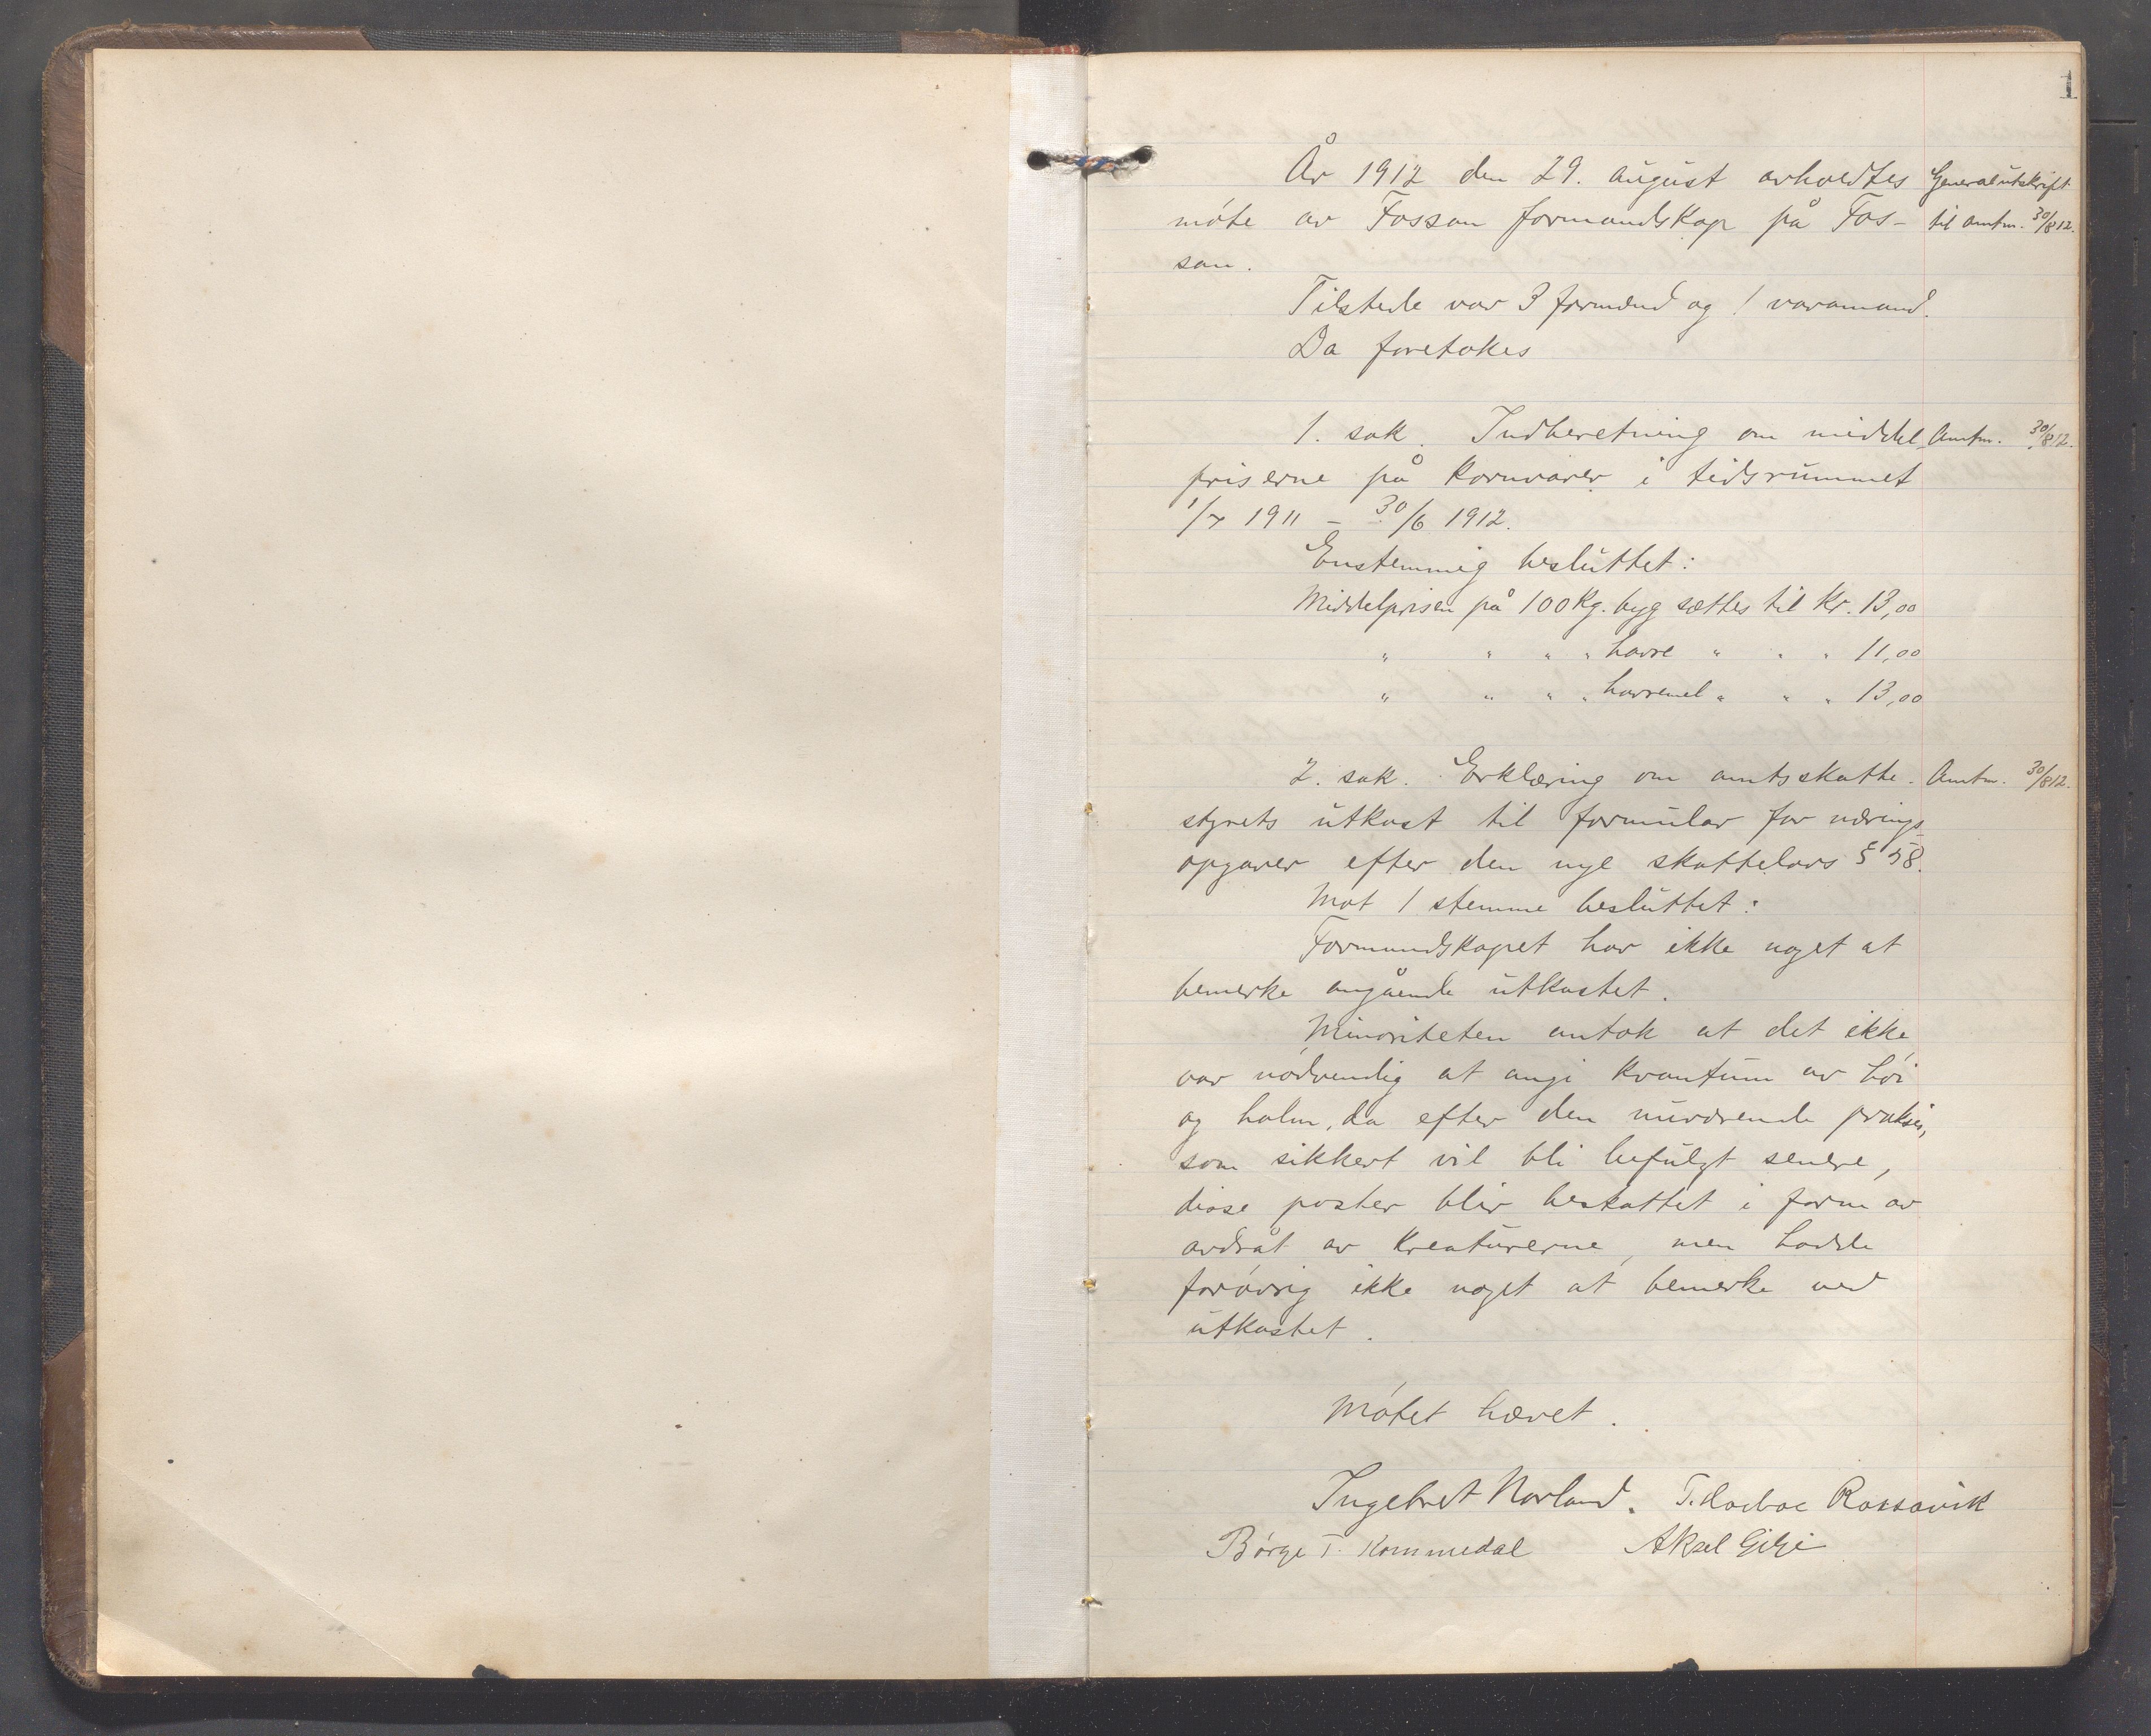 1
År 1912 den 29. august avholdtes Generalutskrift
møte av Fossan formandskap på Fos- til amtm. 30/8 12.
san.
Tilstede var 3 formænd og 1 varamand.
Da foretokes
1. sak. Indberetning om middel- Amtm. 30/8 12.
priserne på kornvarer i tidsrummet
1/7 1911 – 30/6 1912.
Enstemmig besluttet:
Middelprisen på 100 kg. byg sættes til kr. 13,00
" " " " havre " " " 11,00
" " " " havremel " " " 13,00
2. sak. Erklæring om amtsskatte- Amtm. 30/8 12.
styrets utkast til formular for nærings-
opgaver efter den nye skattelovs § 58.
Mot 1 stemme besluttet:
Formandskapet har ikke noget at
bemerke angående utkastet.
Minoriteten antok at det ikke
var nødvendig at angi kvantum av høi
og halm, da efter den nuværende praksis,
som sikkert vil bli befulgt senere,
disse poster blir beskattet i form av
avdråt av kreaturerne, men hadde
forøvrig ikke noget at bemerke ved
utkastet.
Møtet hævet.
Ingebret Norland. T. Rossavik
Børge T. Kommedal Aksel Gilje